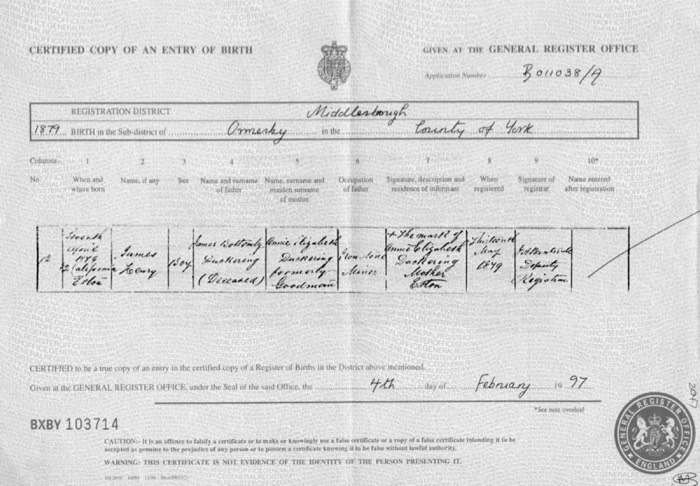 CERTIFIED COPY OF AN ENTRY OF BIRTH
GIVEN AT THE GENERAL REGISTER OFFICE
Application Number B011038/9
REGISTRATION DISTRICT Middlesbrough
1879 BIRTH in the Sub-district of Ormesby in the County of York
Columns:- 1 2 3 4 5 6 7 8 9 10*
No When and where born
Name, if any
Sex
Name and surname of father
Name, surname and maiden surname of mother
Occupation of father
Signature, description and residence of informant
When registered
Signature of registrar
Name entered after registration
Seventh
April
1879
California
Eston
James
Henry
Boy
James
Duckering
(Deceased)
Annie Elizabeth
Duckering
formerly
Goodman
Ironstone
Miner
+ The mark of
Annie Elizabeth
Duckering
Mother
Eston
Thirteenth
May
1879
Deputy
Registrar
CERTIFIED to be a true copy of an entry in the certified copy of a Register of Births in the District above mentioned.
Given at the GENERAL REGISTER OFFICE, under the Seal of the said Office, the 4th day of February 19 97
*See note overleaf
BXBY 103714
CAUTION:- It is an offence to falsify a certificate or to make or knowingly use a false certificate or a copy of a false certificate intending it to be
accepted as genuine to the prejudice of any person or to possess a certificate knowing it to be false without lawful authority.
WARNING: THIS CERTIFICATE IS NOT EVIDENCE OF THE IDENTITY OF THE PERSON PRESENTING IT.
GENERAL REGISTER OFFICE
ENGLAND